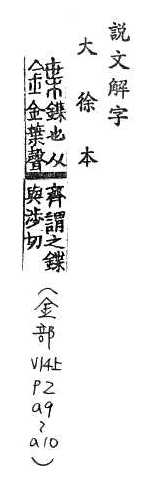 説文解字
大徐本
鍱鏶也从
金葉聲
齊謂之鍱
與涉切
(金部V14上P2a9~a10)